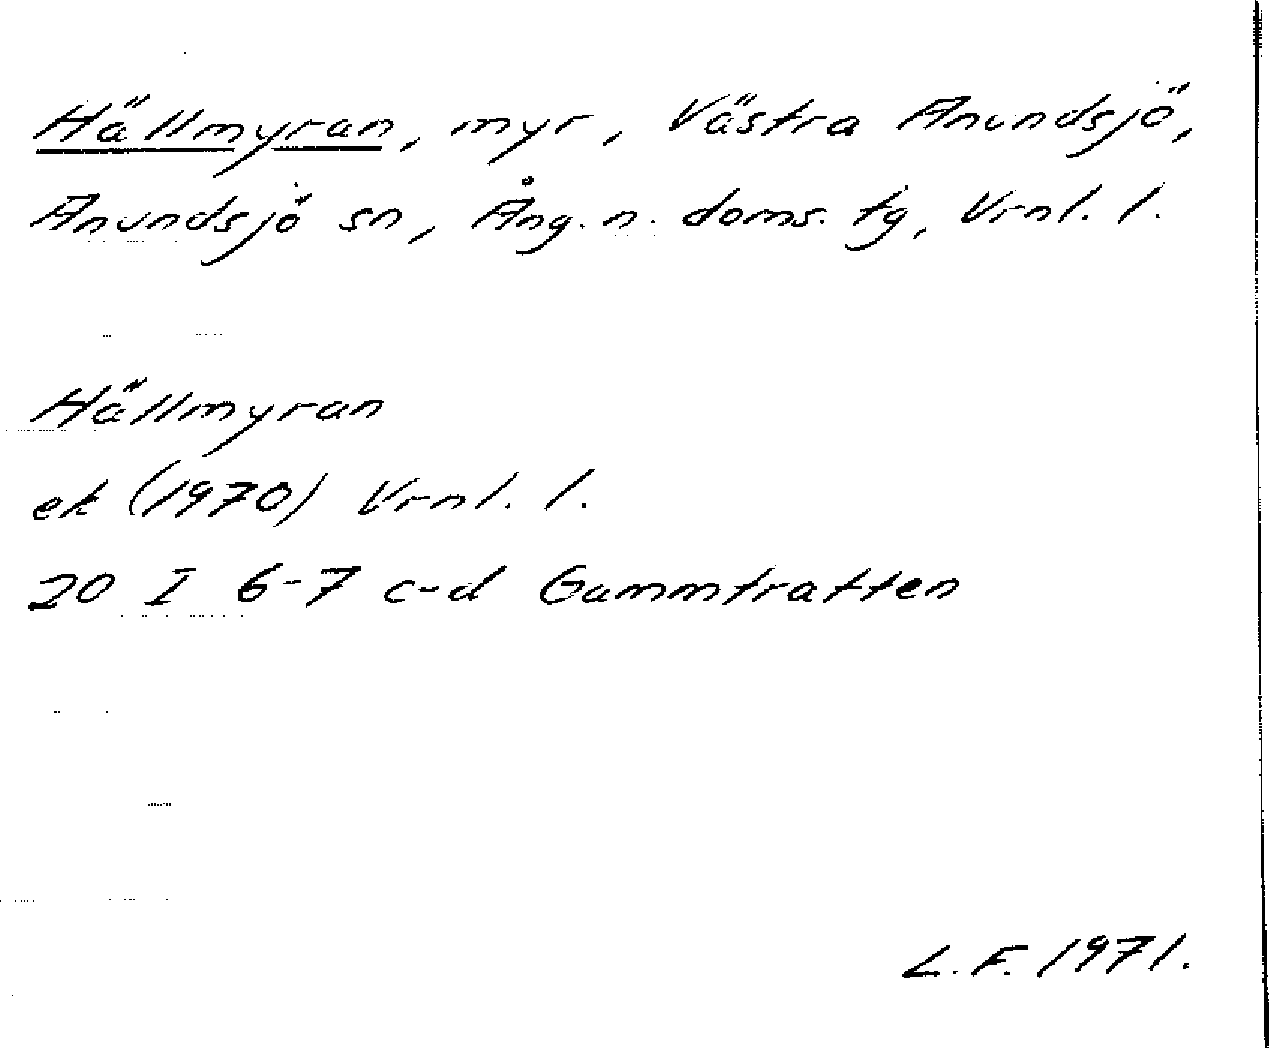 Hällmyran, myr, Västra Anundsjö,
Anundsjö sn, Ång. n. doms. tg, Vrnl. l.
Hällmyran
ek (1970) Vrnl. l.
20 I 6-7 c-d Gammtratten
L.F. 1971.